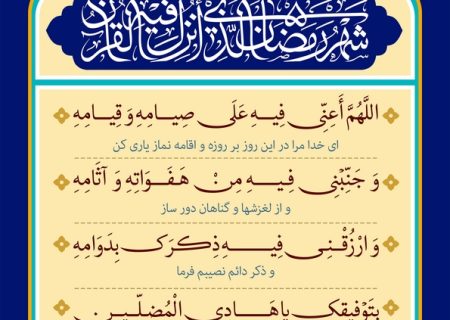 شَهْرُ رَمَضَانَ الَّذِي أُنْزِلَ فِيهِ الْقُرْآنُ
اللَّهُمَّ أَعِنِّی فِیهِ عَلَی صِیَامِهِ وَ قِیَامِهِ
ای خدا مرا در این روز بر روزه و اقامه نماز یاری کن
وَ جَنِّبْنِی فِیهِ مِنْ هَفَوَاتِهِ وَ آثَامِهِ
و از لغزشها و گناهان دور ساز
وَ ارْزُقْنِی فِیهِ ذِکْرَکَ بِدَوَامِهِ
و ذکر دائم نصیبم فرما
بِتَوْفِیقِکَ یَا هَادِیَ الْمُضِلِّینَ .